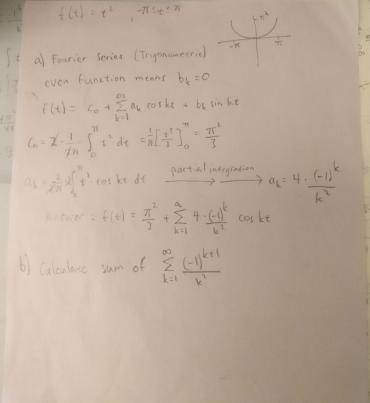 f(t) = t², -π≤t≤π
π²
-π π
a) Fourier Series (Trigonometric)
even function means bₖ=0
f(t) = c₀ + ∑_{k=1}^{∞} aₖ cos kt + bₖ sin kt
C₀ = 2·1/2π ∫₀^π t² dt = 1/π [t³/3]₀^π = π²/3
aₖ = 2∫₀^π t² · cos kt dt partial integration → aₖ = 4 · (-1)^k/k²
Answer = f(t) = π²/3 + ∑_{k=1}^{∞} 4 · (-1)^k/k² cos kt
b) Calculate sum of ∑_{k=1}^{∞} (-1)^{k+1}/k²